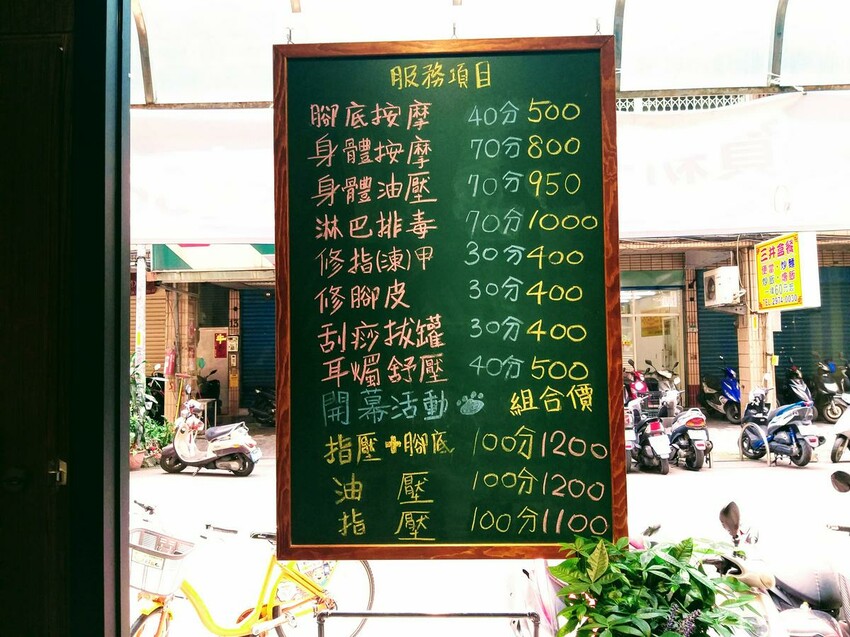 服務項目
腳底按摩 40分500
身體按摩 70分800
身體油壓 70分950
淋巴排毒 70分1000
修指(凍)甲 30分400
修腳皮 30分400
刮痧拔罐 30分400
耳燭舒壓 40分500
開幕活動 組合價
指壓+腳底 100分1200
油壓 100分1200
指壓 100分1100
三井盒餐